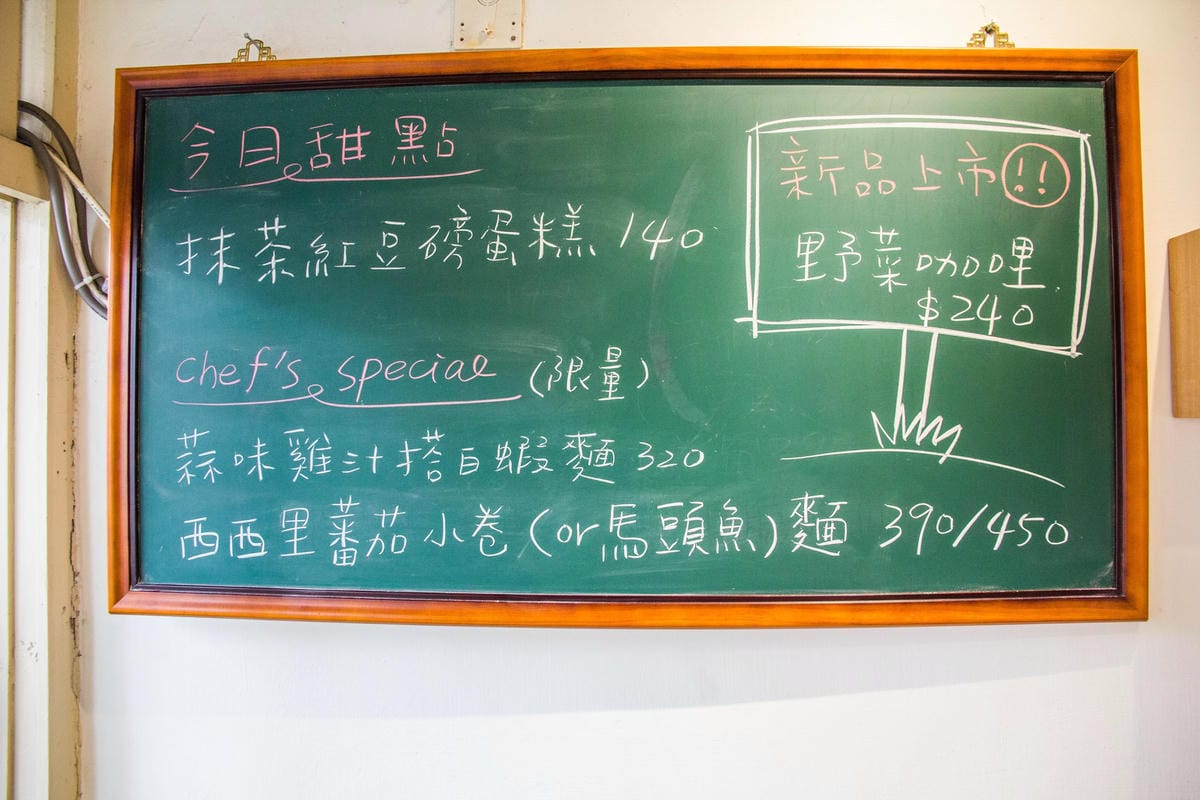 今日甜點
抹茶紅豆磅蛋糕 140
chef's special (限量)
蒜味雞汁搭白蝦麵 320
西西里蕃茄小卷(or馬頭魚)麵 390/450
新品上市!!
野菜咖哩
$240